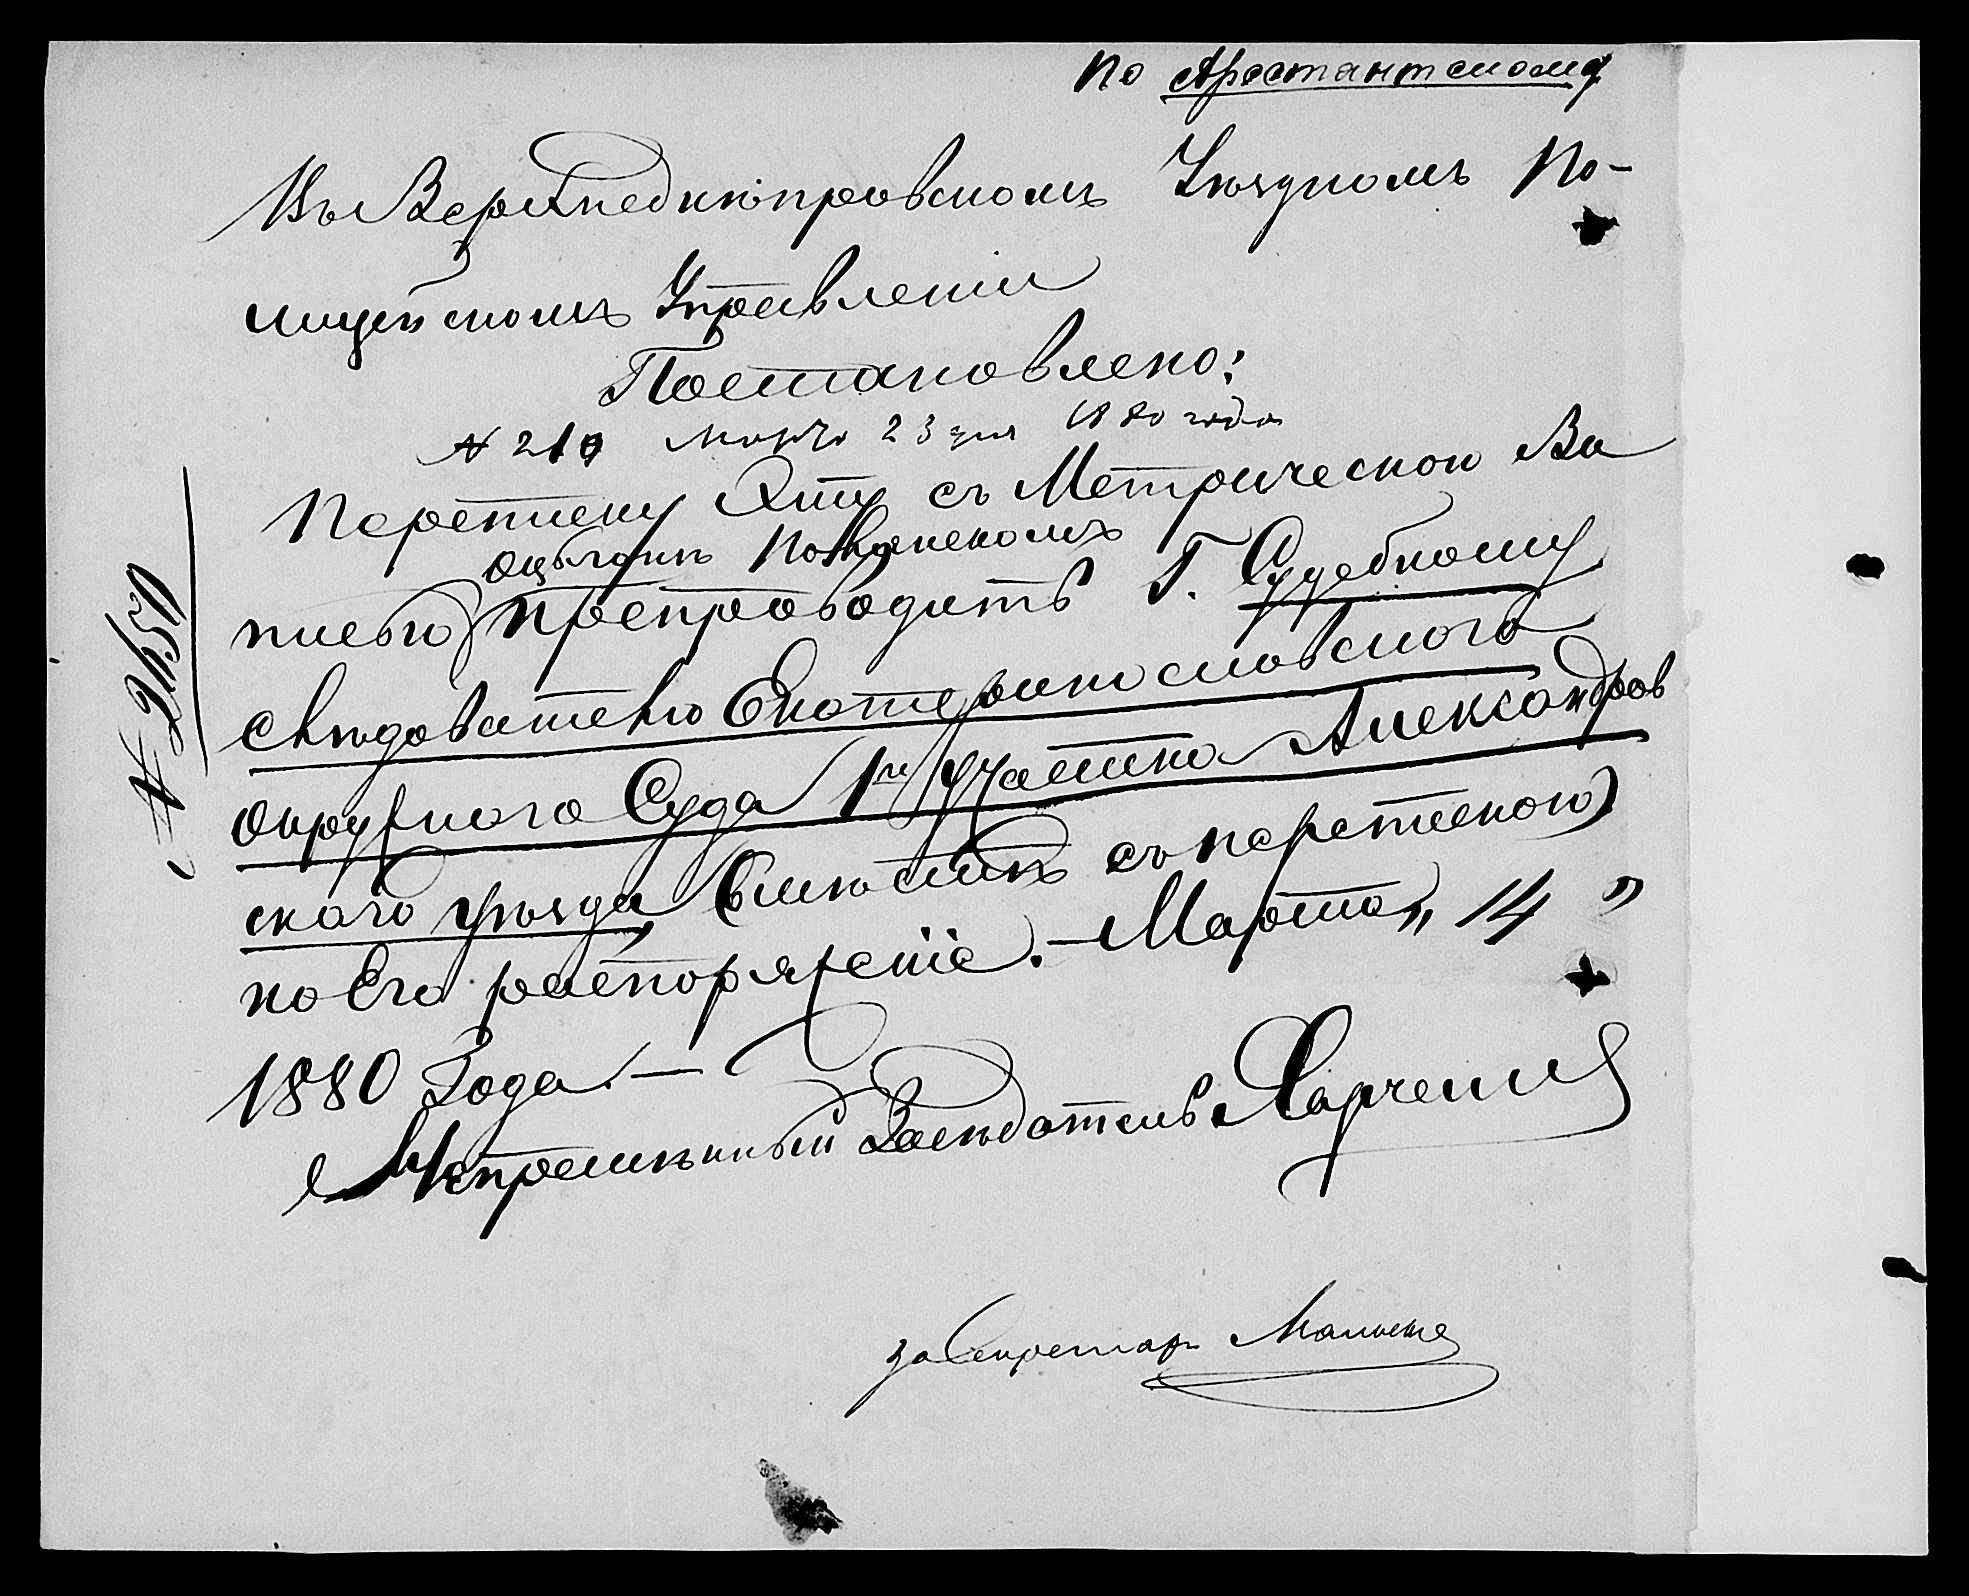 По Арестантскому
Въ Верхнеднѣпровскомъ Уѣздномъ По-
лицейскомъ Управленіи
Постановлено:
№ 219 Марта 23 дня 1880 года
Переписку эту съ Метрическою Вы
писью препроводить Г. Судебному
Слѣдователю Екатеринославского
Окружнаго Суда 1го участка Александров
скаго уѣзда, съ перепискою
по Его распоряженіе. — Марта „14"
1880 Года. —
Непремѣнный Засѣдатель Харченко
за Секретаря
№ 2450